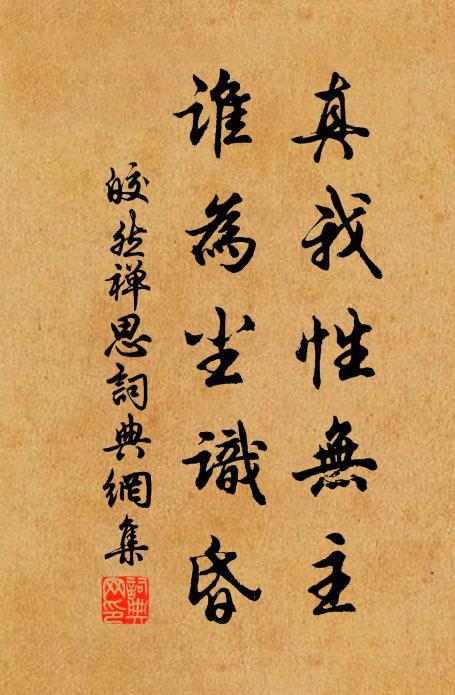 真我性無主
誰為坐識昏
皎然禅思詞典網集
詞典
网印